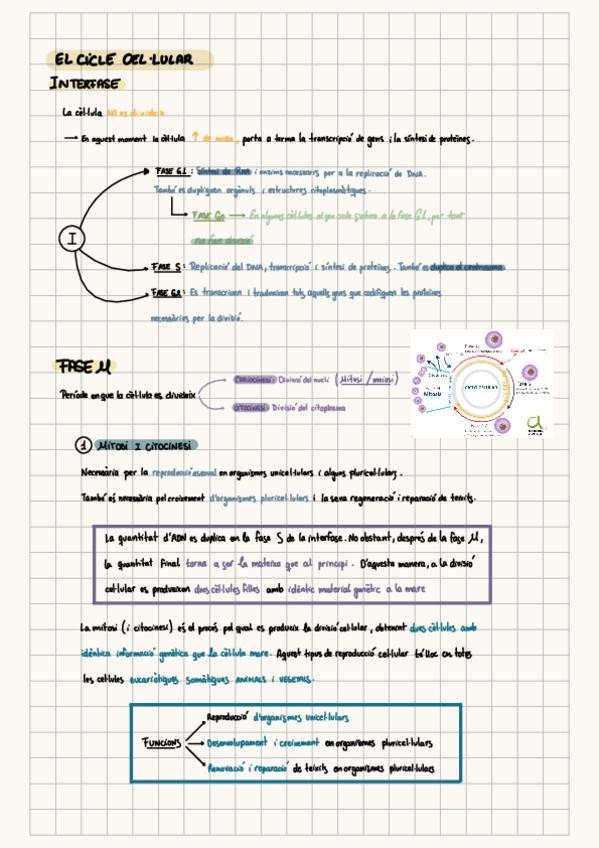 EL CICLE CEL·LULAR
INTERFASE
La cèl·lula NO es divideix
→ En aquest moment la cèl·lula ↑ de mida, porta a terme la transcripció de gens i la síntesi de proteïnes.
I
FASE G1: Síntesi de RNA i enzims necessaris per a la replicació de DNA.
També es dupliquen orgànuls i estructures citoplasmàtiques.
FASE G0 → En algunes cèl·lules el cicle s'atura a la fase G1, per tant
no fan divisió
FASE S: Replicació del DNA, transcripció i síntesi de proteïnes. També es duplica el centrosoma
FASE G2: Es transcriuen i tradueixen tots aquells gens que codifiquen les proteïnes
necessàries per la divisió.
FASE M
Període en que la cèl·lula es divideix
CARIOCINESI: Divisió del nucli (Mitosi / meiosi)
CITOCINESI: Divisió del citoplasma
CICLE CELULAR
Mitosis
1 MITOSI I CITOCINESI
Necessària per la reproducció asexual en organismes unicel·lulars i alguns pluricel·lulars.
També és necessària pel creixement d'organismes pluricel·lulars i la seva regeneració i reparació de teixits.
La quantitat d'ADN es duplica en la fase S de la interfase. No obstant, després de la fase M,
la quantitat final torna a ser la mateixa que al principi. D'aquesta manera, a la divisió
cel·lular es produeixen dues cèl·lules filles amb idèntic material genètic a la mare
La mitosi (i citocinesi) és el procés pel qual es produeix la divisió cel·lular, obtenint dues cèl·lules amb
idèntica informació genètica que la cèl·lula mare. Aquest tipus de reproducció cel·lular té lloc en totes
les cèl·lules eucariòtiques somàtiques ANIMALS i VEGETALS.
FUNCIONS
Reproducció d'organismes unicel·lulars
Desenvolupament i creixement en organismes pluricel·lulars
Renovació i reparació de teixits en organismes pluricel·lulars